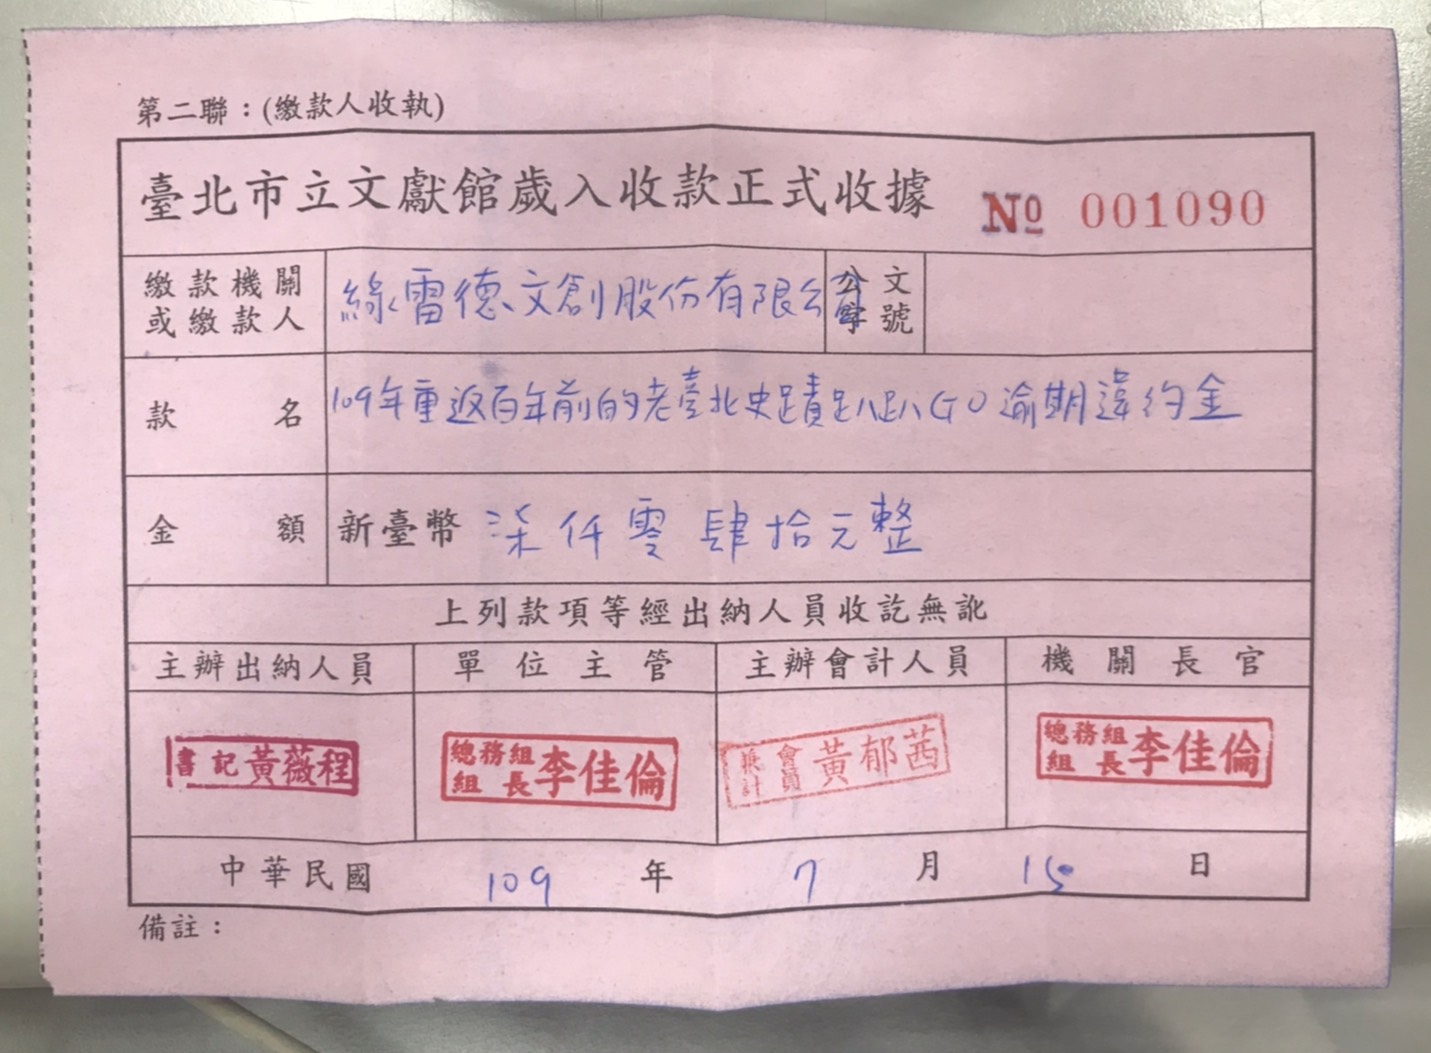 第二聯：(繳款人收執)
臺北市立文獻館歲入收款正式收據 № 001090
繳款機關
或繳款人
綠雷德文創股份有限公司
公文
字號
款名
109年重返百年前的老臺北史蹟趴趴GO逾期違約金
金額
新臺幣 柒仟零肆拾元整
上列款項等經出納人員收訖無訛
主辦出納人員 單位主管 主辦會計人員 機關長官
書記 黃薇程
總務組
組長
李佳倫
會計
員
黃郁茜
總務組
組長
李佳倫
中華民國 109 年 7 月 15 日
備註：